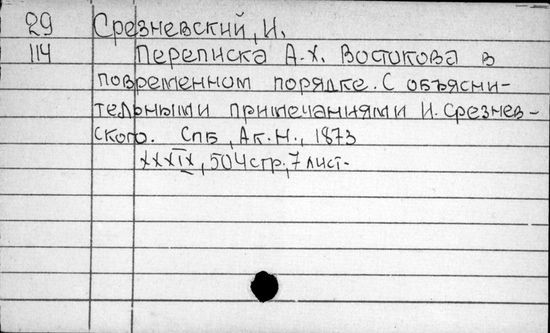 29 Срезневский, И.
114 Переписка А.Х. Востокова в
повременном порядке. С объясни-
тельными примечаниями И. Срезнев-
ского. СПБ, Ак.Н., 1873
XXXIX, 504 стр., 7 лист.